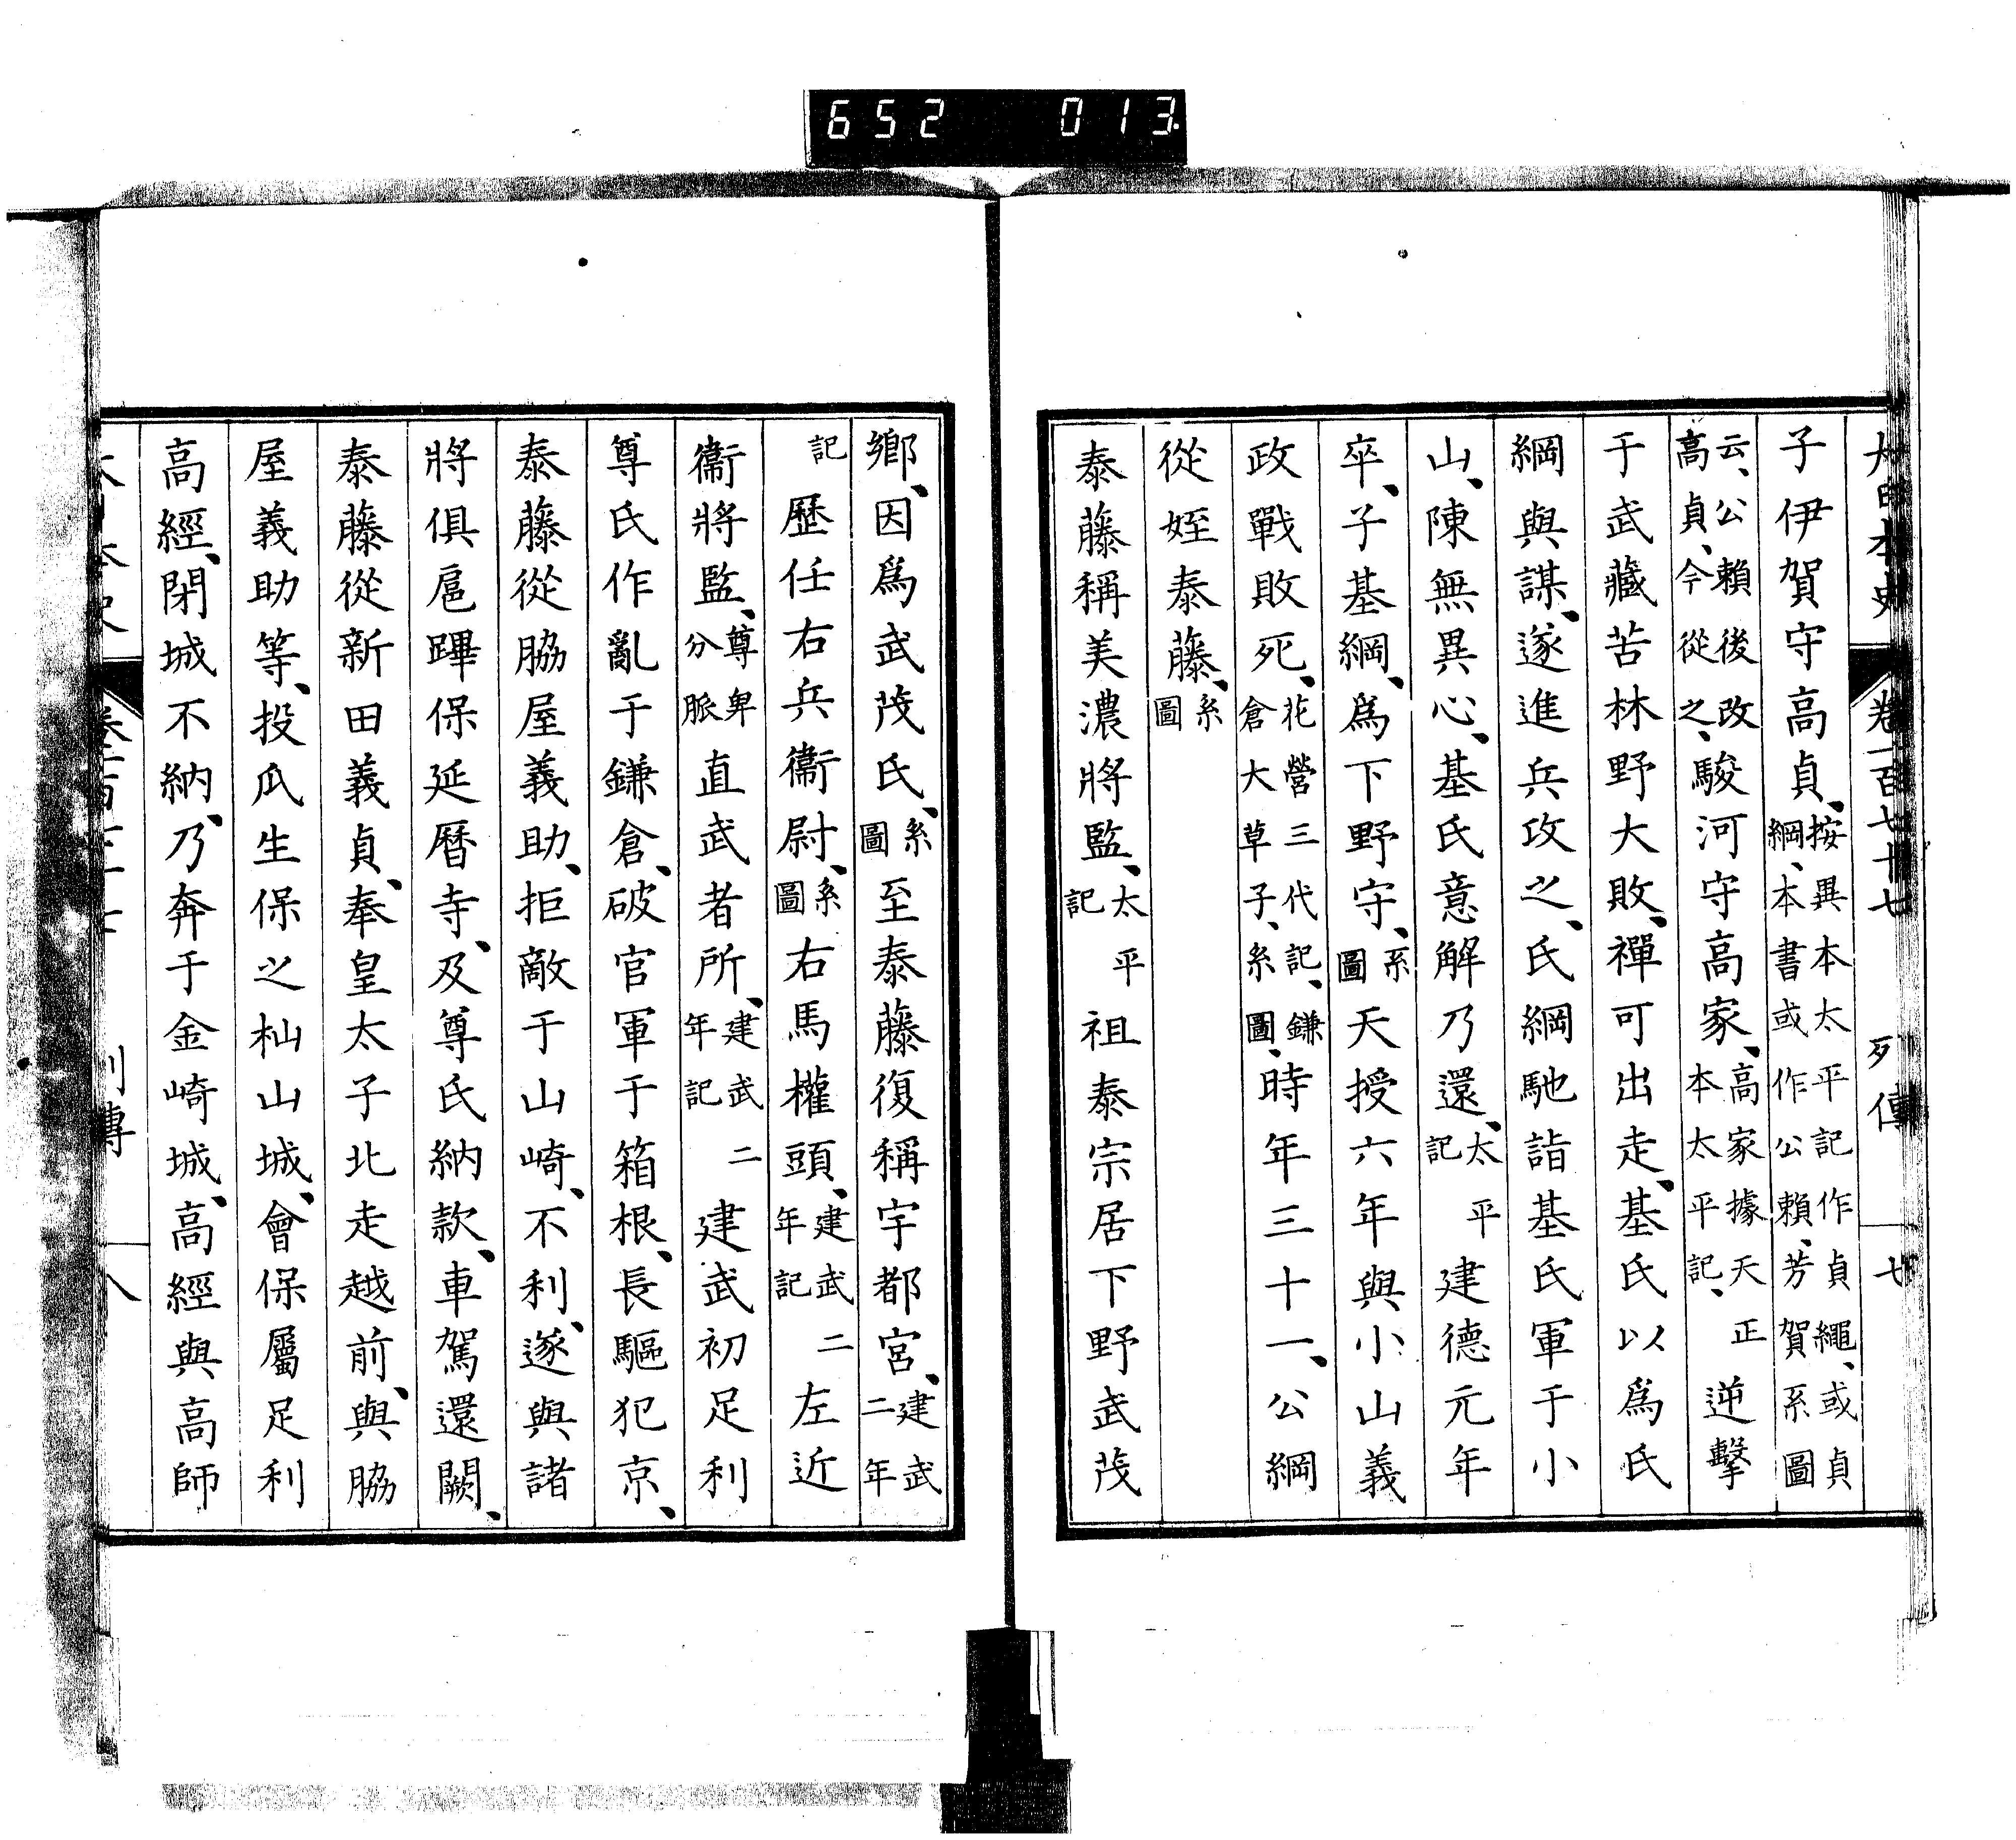 652 013.
大日本史 卷一百七十七 列傳 七
子伊賀守高貞、按異本太平記作貞綱、本書或作公賴、芳賀系圖繩、或貞
云、公賴後改高貞、今從之、駿河守高家、高家據天正本太平記、逆擊
于武藏苦林野大敗、禪可出走、基氏以爲氏
綱與謀、遂進兵攻之、氏綱馳詣基氏軍于小
山、陳無異心、基氏意解乃還、太平記建德元年
卒、子基綱、爲下野守、系圖天授六年與小山義
政戰敗死、花營三代記、鎌倉大草子、系圖、時年三十一、公綱
從姪泰藤、系圖
泰藤稱美濃將監、太平記祖泰宗居下野武茂
鄉、因爲武茂氏、系圖至泰藤復稱宇都宮、建武二年
記歷任右兵衞尉、系圖右馬權頭、建武二年記左近
衞將監、尊卑分脈直武者所、建武二年記建武初足利
尊氏作亂于鎌倉、破官軍于箱根、長驅犯京、
泰藤從脇屋義助、拒敵于山崎、不利、遂與諸
將俱扈蹕保延曆寺、及尊氏納款、車駕還闕、
泰藤從新田義貞、奉皇太子北走越前、與脇
屋義助等、投瓜生保之杣山城、會保屬足利
高經、閉城不納、乃奔于金崎城、高經與高師